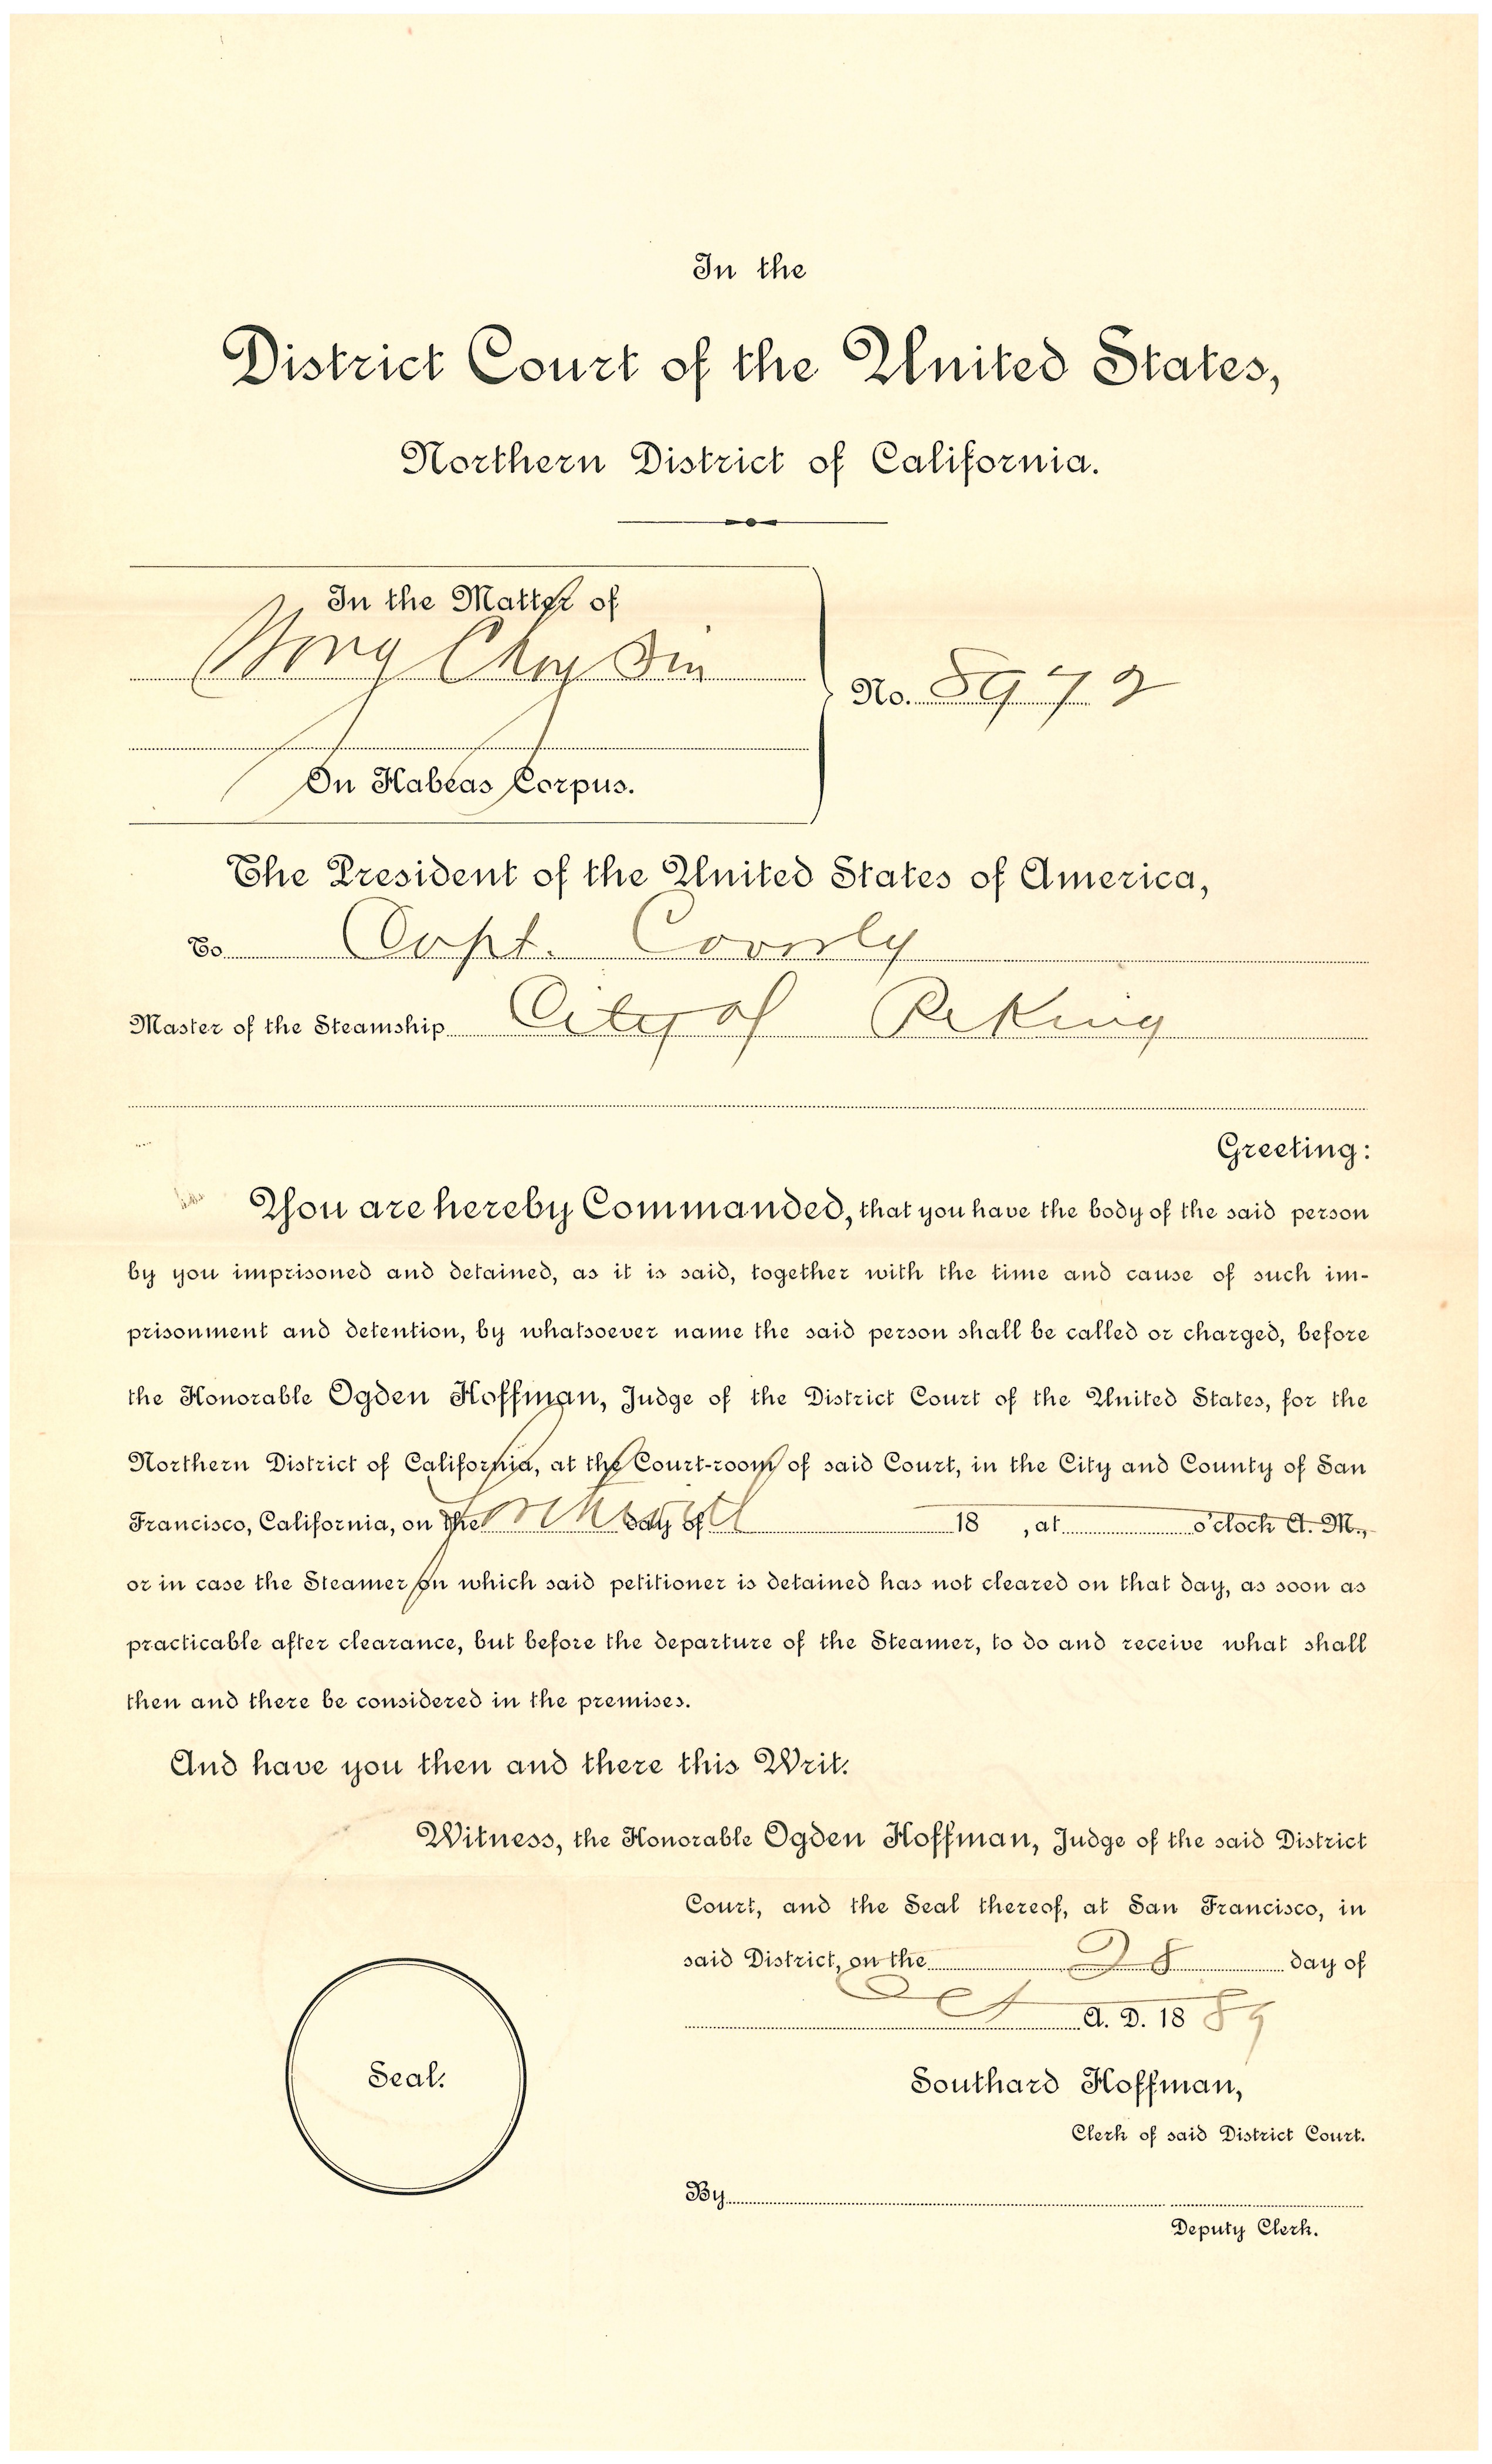 In the
District Court of the United States,
Northern District of California.
In the Matter of
Wong Choy Sin
No. 8972
On Habeas Corpus.
The President of the United States of America,
To Capt. Coverly
Master of the Steamship City of Peking
Greeting:
You are hereby Commanded, that you have the body of the said person
by you imprisoned and detained, as it is said, together with the time and cause of such im-
prisonment and detention, by whatsoever name the said person shall be called or charged, before
the Honorable Ogden Hoffman, Judge of the District Court of the United States, for the
Northern District of California, at the Court-room of said Court, in the City and County of San
Francisco, California, on the forthwith day of 18 , at o'clock A. M.,
or in case the Steamer on which said petitioner is detained has not cleared on that day, as soon as
practicable after clearance, but before the departure of the Steamer, to do and receive what shall
then and there be considered in the premises.
And have you then and there this Writ.
Witness, the Honorable Ogden Hoffman, Judge of the said District
Court, and the Seal thereof, at San Francisco, in
said District, on the 28 day of
Oct A. D. 1889
Seal.
Southard Hoffman,
Clerk of said District Court.
By
Deputy Clerk.